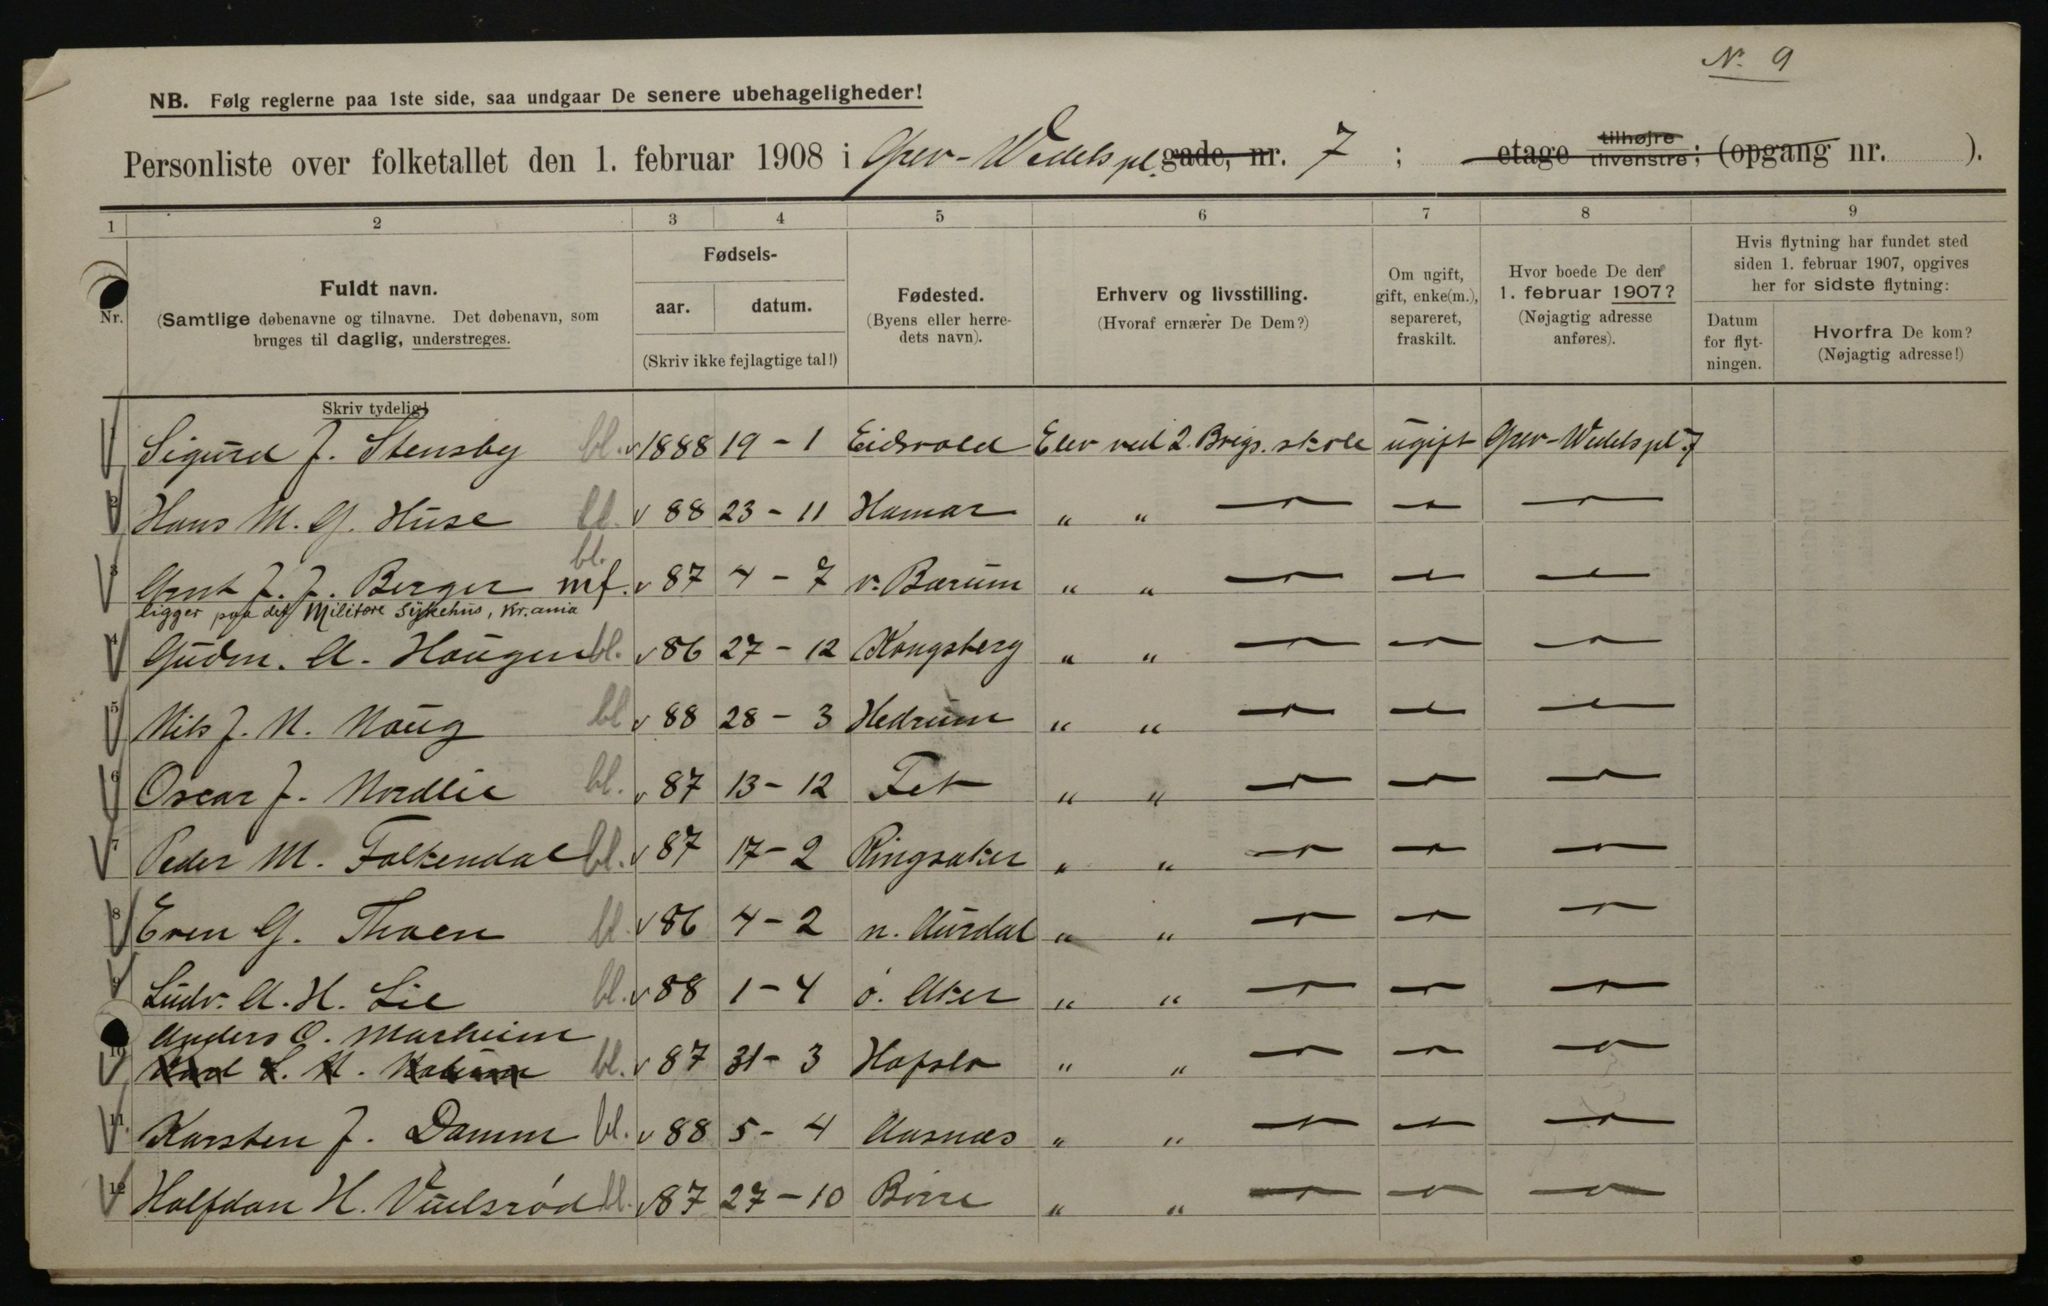 Nr. 9
NB. Følg reglerne paa 1ste side, saa undgaar De senere ubehageligheder!
Personliste over folketallet den 1. februar 1908 i Grev-Wedels pl. gade, nr. 7 ; etage tilhøjre tilvenstre; (opgang nr. ).
1 2 3 4 5 6 7 8 9
Nr.
Fuldt navn.
(Samtlige døbenavne og tilnavne. Det døbenavn, som
bruges til daglig, understreges.
Skriv tydelig!
Fødsels-
aar. datum.
(Skriv ikke fejlagtige tal!)
Fødested.
(Byens eller herre-
dets navn).
Erhverv og livsstilling.
(Hvoraf ernærer De Dem?)
Om ugift,
gift, enke(m.),
separeret,
fraskilt.
Hvor boede De den
1. februar 1907?
(Nøjagtig adresse
anføres).
Hvis flytning har fundet sted
siden 1. februar 1907, opgives
her for sidste flytning:
Datum
for flyt-
ningen.
Hvorfra De kom?
(Nøjagtig adresse!)
Sigurd J. Stensby bl. v 1888 19 - 1 Eidsvold Elev ved 2. Brigs. skole ugift Grev-Wedels pl 7
2 Hans M. G. Huse bl. v 88 23 - 11 Hamar " " — — —
bl.
3 Arnt J. J. Berger mf. v 87 4 - 7 v. Bærum " " — — —
ligger paa det Militære Sykehus, Kr.ania
4 Gudm. A. Haugen bl. v 86 27 - 12 Kongsberg " " — — —
5 Nils J. N. Haug bl v 88 28 - 3 Hedrum " " — — —
6 Oscar J. Nordlie bl. v 87 13 - 12 Fet " " — — —
7 Peder M. Falkendal bl. v 87 17 - 2 Ringsaker " " — — —
8 Even G. Thoen bl. v 86 4 - 2 n. Aurdal " " — — —
9 Ludv. A. H. Lie bl. v 88 1 - 4 ø. Aker " " — — —
Anders O. Marheim
10 bl. v 87 31 - 3 Hafslo " " — — —
11 Karsten J. Damm bl. v 88 5 - 4 Aasnæs " " — — —
12 Halfdan H. Vielsrød bl. v 87 27 - 10 Borre " " — — —